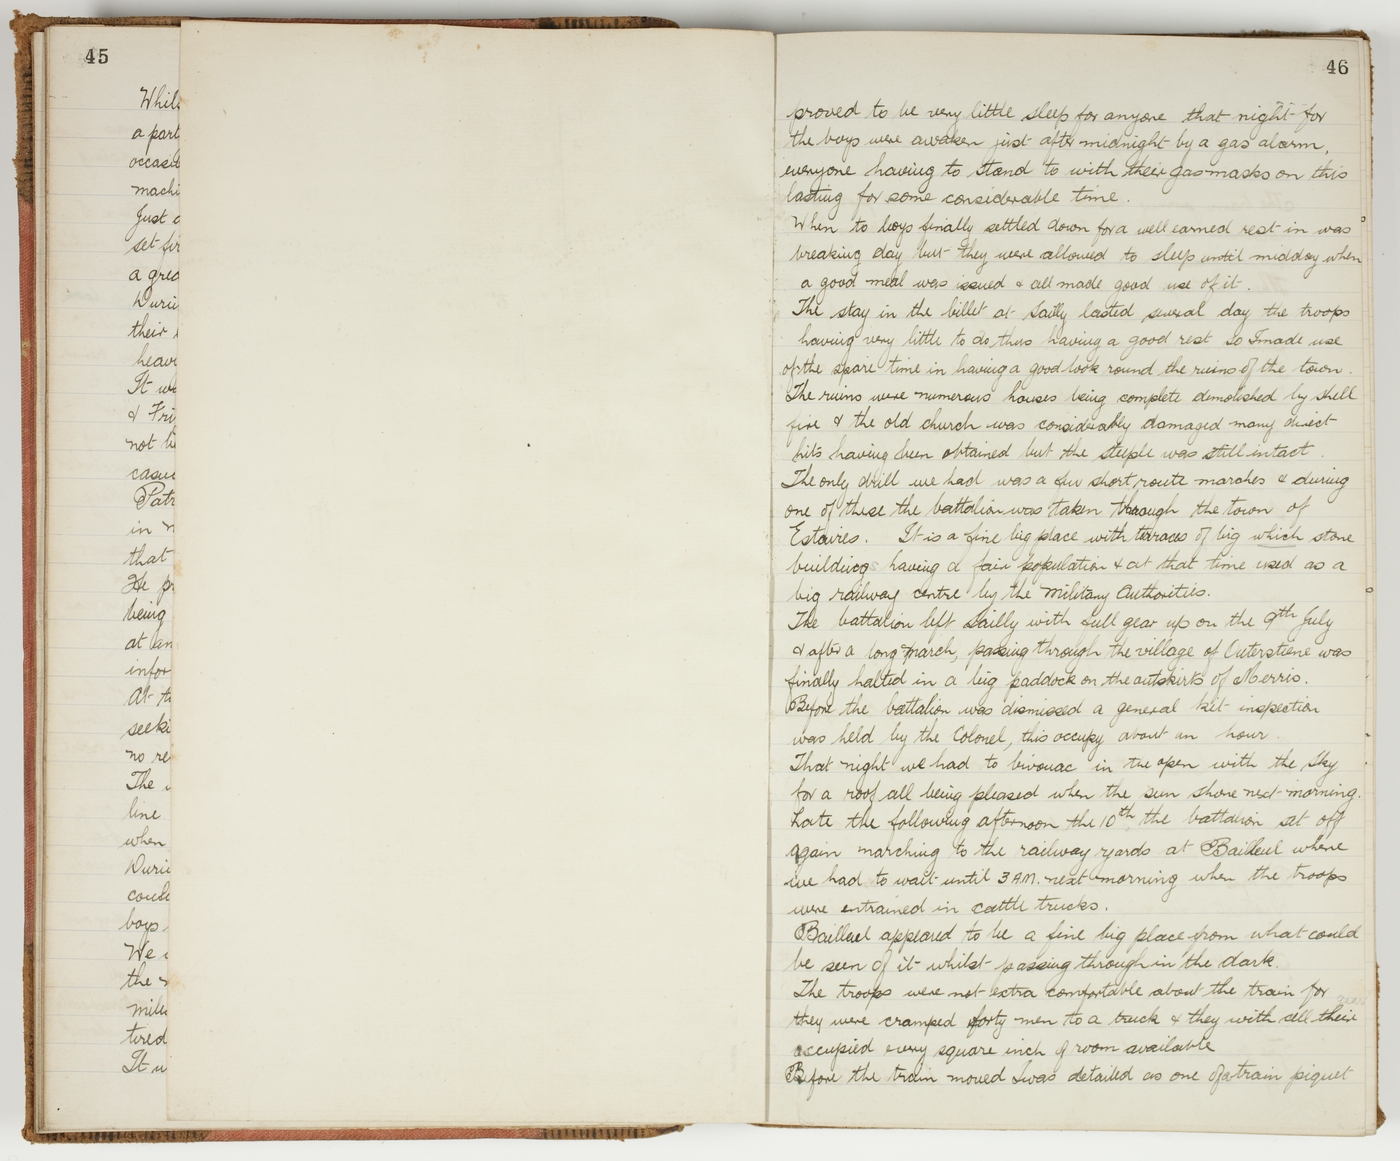 45
Whil
a part
occasi
machi
Just a
set fir
a grea
Durin
their
heav
It wa
& Fri
not b
casua
Patr
in n
that
He pr
being
at an
infor
At th
seeki
no re
The
line
when
Duri
could
boys
We
the
mile
tired
It w
46
proved to be very little sleep for anyone that night for
the boys were awaken just after midnight by a gas alarm,
everyone having to stand to with their gas masks on this
lasting for some considerable time.
When to boys finally settled down for a well earned rest in was
breaking day but they were allowed to sleep until midday when
a good meal was issued & all made good use of it.
The stay in the billet at Sailly lasted several day the troops
having very little to do thus having a good rest so I made use
of the spare time in having a good look round the ruins of the town.
The ruins were numerous houses being complete demolished by shell
fire & the old church was considerably damaged many direct
hits having been obtained but the steeple was still intact.
The only drill we had was a few short route marches & during
one of these the battalion was taken through the town of
Estaires. It is a fine big place with terraces of big which stone
buildings having a fair population & at that time used as a
big railway centre by the Military Authorities.
The battalion left Sailly with full gear up on the 9th July
& after a long march, passing through the village of Outerstiene was
finally halted in a big paddock on the outskirts of Merris.
Before the battalion was dismissed a general kit inspection
was held by the Colonel, this occupy about an hour.
That night we had to bivouac in the open with the sky
for a roof all being pleased when the sun shone next morning.
Late the following afternoon the 10th, the battalion set off
again marching to the railway yards at Bailleul where
we had to wait until 3 A.M. next morning when the troops
were entrained in cattle trucks.
Bailleul appeared to be a fine big place from what could
be seen of it whilst passing through in the dark.
The troops were not extra comfortable about the train for
they were cramped forty men to a truck & they with all their gear
occupied every square inch of room available
Before the train moved I was detailed as one of a train piquet